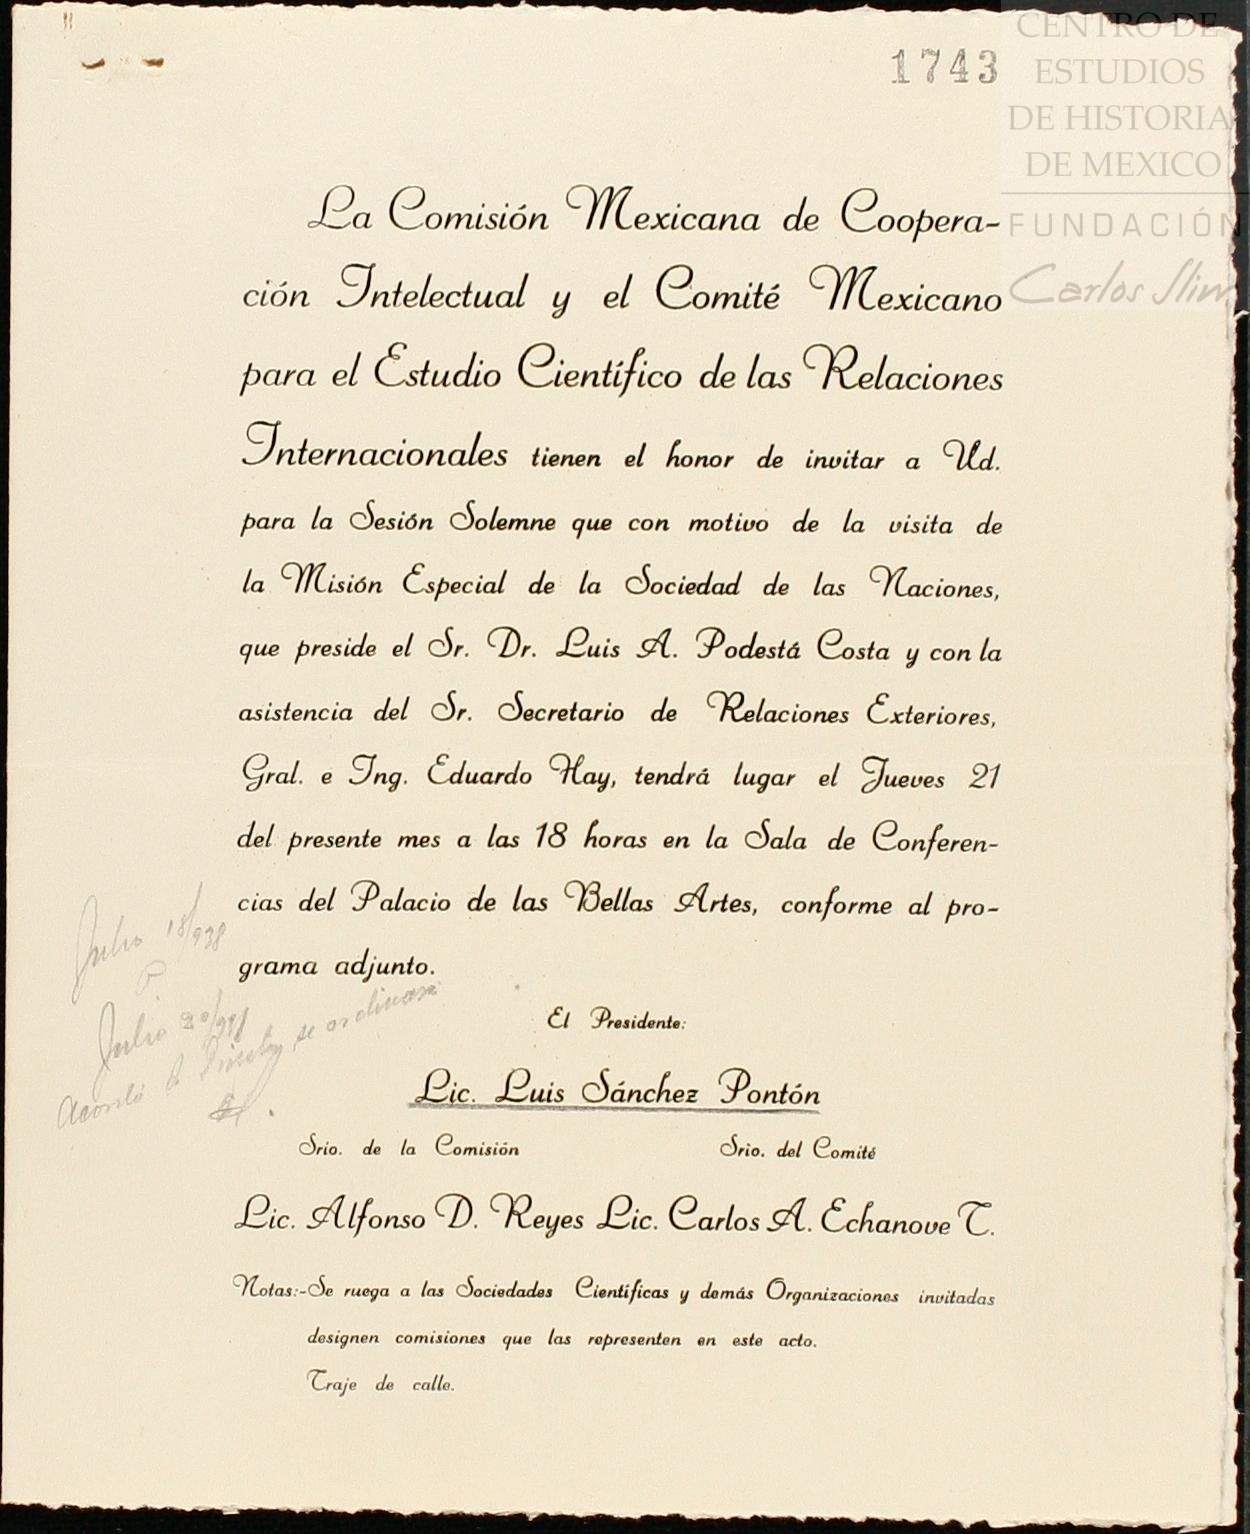 1743
CENTRO DE
ESTUDIOS
DE HISTORIA
DE MEXICO
FUNDACIÓN
Carlos Slim
La Comisión Mexicana de Coopera-
ción Intelectual y el Comité Mexicano
para el Estudio Científico de las Relaciones
Internacionales tienen el honor de invitar a Ud.
para la Sesión Solemne que con motivo de la visita de
la Misión Especial de la Sociedad de las Naciones,
que preside el Sr. Dr. Luis A. Podestá Costa y con la
asistencia del Sr. Secretario de Relaciones Exteriores,
Gral. e Ing. Eduardo Hay, tendrá lugar el Jueves 21
del presente mes a las 18 horas en la Sala de Conferen-
cias del Palacio de las Bellas Artes, conforme al pro-
grama adjunto.
Julio 18/938
Julio 20/938
Acordó se
El Presidente:
Lic. Luis Sánchez Pontón
Srio. de la Comisión Srio. del Comité
Lic. Alfonso D. Reyes Lic. Carlos A. Echanove T.
Notas:-Se ruega a las Sociedades Científicas y demás Organizaciones invitadas
designen comisiones que las representen en este acto.
Traje de calle.